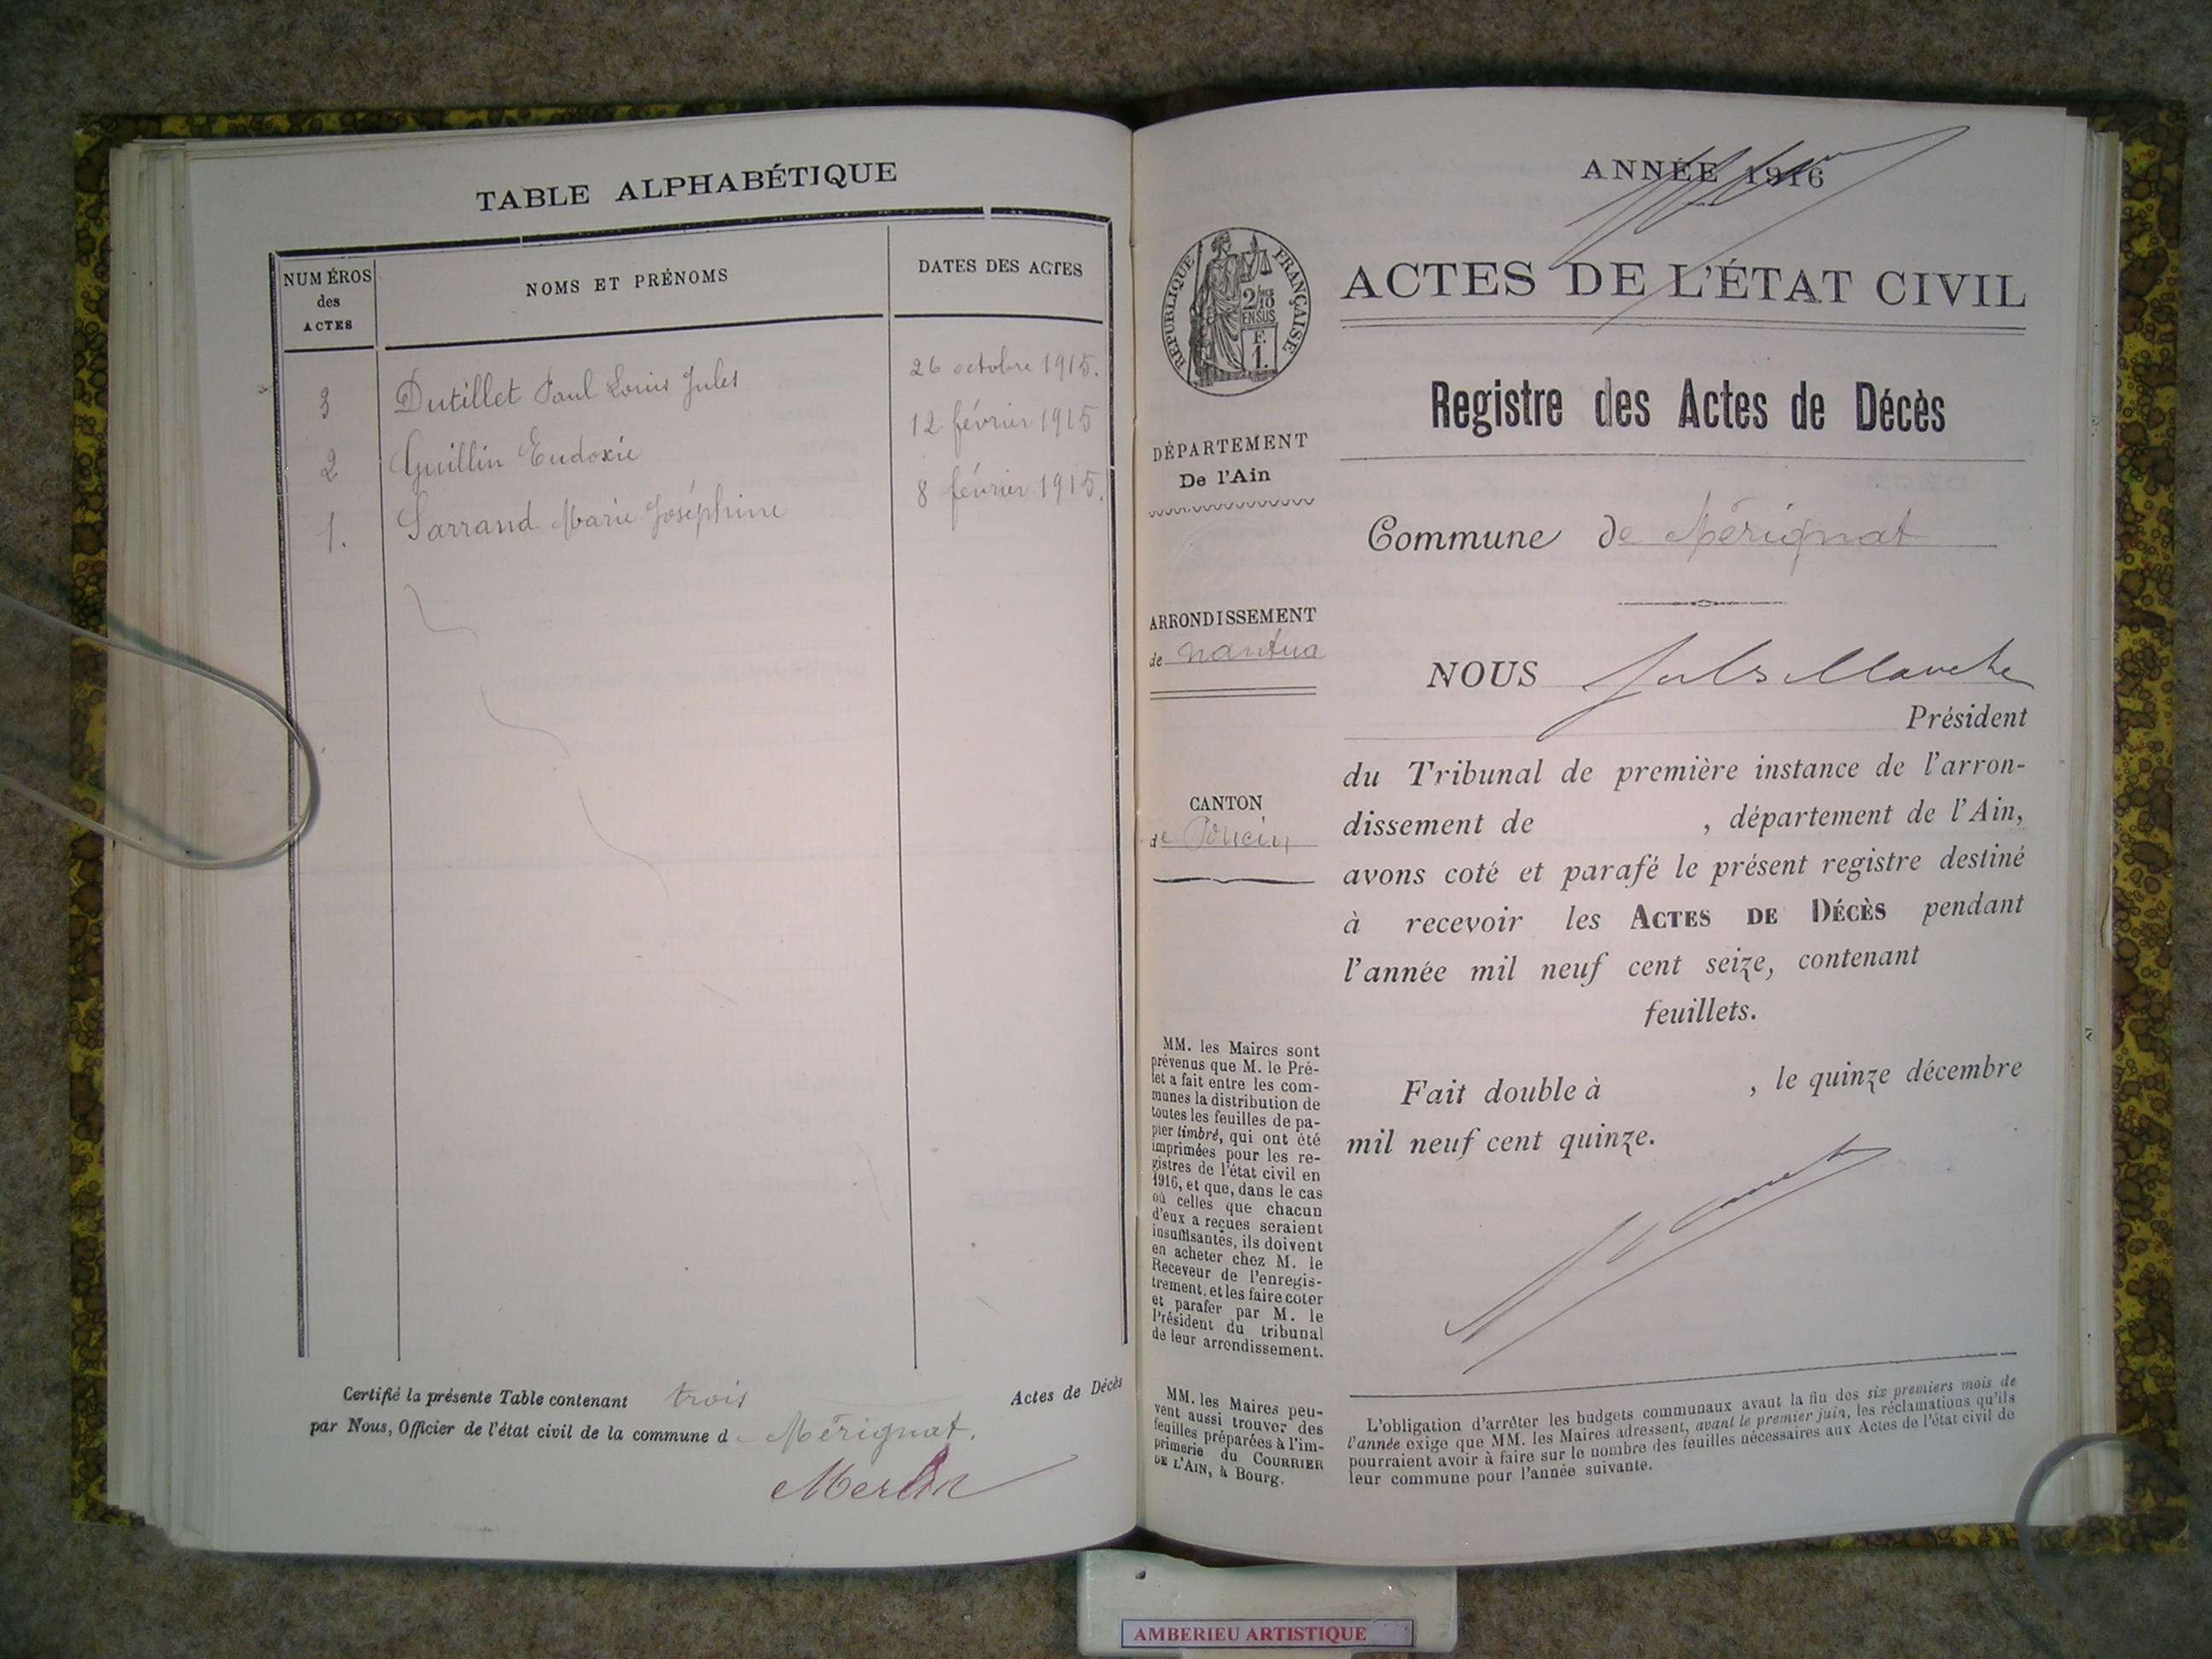 TABLE ALPHABÉTIQUE
NUMÉROS
des
ACTES
NOMS ET PRÉNOMS
DATES DES ACTES
3 Dutillet Paul Louis Jules 26 octobre 1915.
2 Guillin Eudoxie 12 février 1915
1. Sarrand Marie Joséphine 8 février 1915.
Certifié la présente Table contenant trois Actes de Décès
par Nous, Officier de l'état civil de la commune d Mérignat.
Merlin
ANNÉE 1916
RÉPUBLIQUE FRANÇAISE
2/10
EN SUS
F.
1.
ACTES DE L'ÉTAT CIVIL
Registre des Actes de Décès
DÉPARTEMENT
De l'Ain
Commune de Mérignat
ARRONDISSEMENT
de Nantua
NOUS Jules
Président
du Tribunal de première instance de l'arron-
dissement de , département de l'Ain,
avons coté et parafé le présent registre destiné
à recevoir les ACTES DE DÉCÈS pendant
l'année mil neuf cent seize, contenant
feuillets.
Fait double à , le quinze décembre
mil neuf cent quinze.
CANTON
de Poncin
MM. les Maires sont
prévenus que M. le Pré-
fet a fait entre les com-
munes la distribution de
toutes les feuilles de pa-
pier timbré, qui ont été
imprimées pour les re-
gistres de l'état civil en
1916, et que, dans le cas
où celles que chacun
d'eux a reçues seraient
insuffisantes, ils doivent
en acheter chez M. le
Receveur de l'enregis-
trement, et les faire coter
et parafer par M. le
Président du tribunal
de leur arrondissement.
MM. les Maires peu-
vent aussi trouver des
feuilles préparées à l'im-
primerie du COURRIER
DE L'AIN, à Bourg.
L'obligation d'arrêter les budgets communaux avant la fin des six premiers mois de
l'année exige que MM. les Maires adressent, avant le premier juin, les réclamations qu'ils
pourraient avoir à faire sur le nombre des feuilles nécessaires aux Actes de l'état civil de
leur commune pour l'année suivante.
AMBERIEU ARTISTIQUE